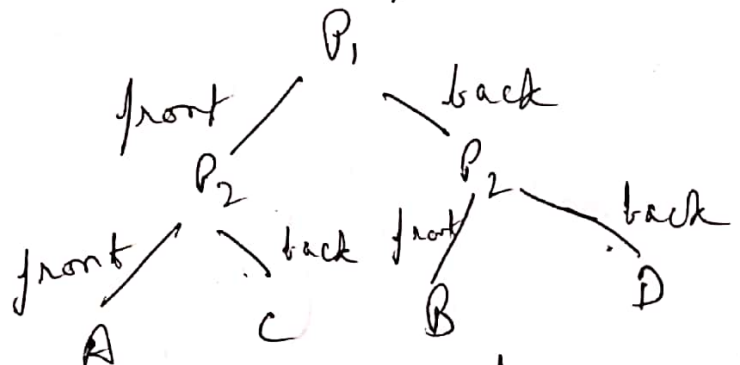 P1
front back
P2 P2
front back front back
A C B D